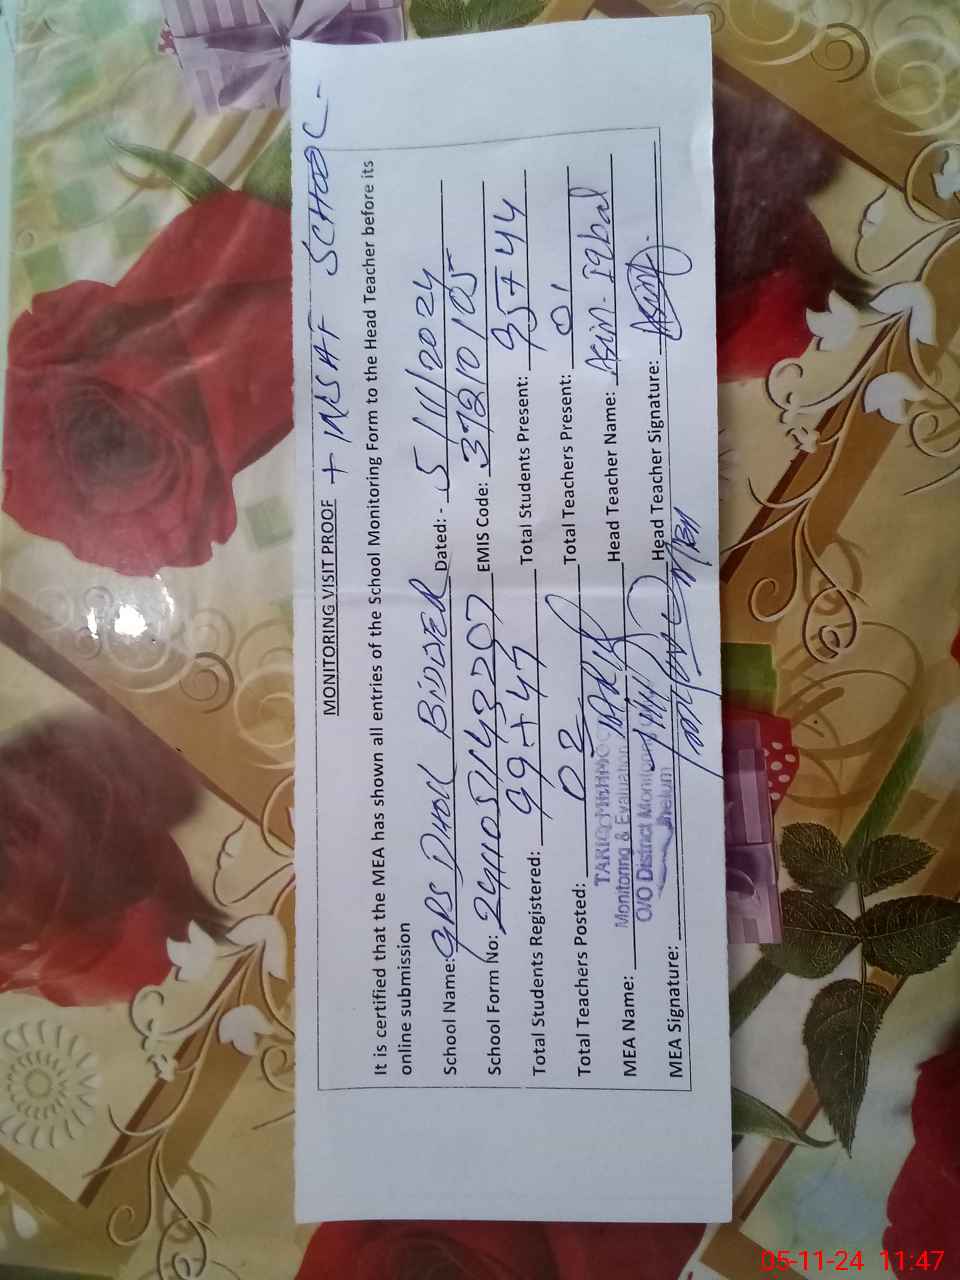 MONITORING VISIT PROOF + INSAF SCHOOL -
It is certified that the MEA has shown all entries of the School Monitoring Form to the Head Teacher before its
online submission
School Name: GPS DHOK BIDDER Dated: - 5/11/2024
School Form No: 2411051143207 EMIS Code: 37210105
Total Students Registered: 99+47 Total Students Present: 95+44
Total Teachers Posted: 02 Total Teachers Present: 01
TARIQ MEHMOOD
MEA Name: Monitoring & Evaluation Head Teacher Name: Asim Iqbal
O/O District Monitoring
Jhelum
MEA Signature: Head Teacher Signature: Asim
05-11-24 11:47